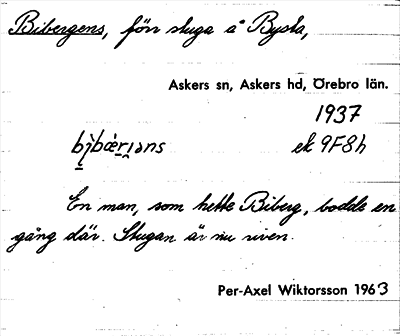 Bibergens, förr stuga å Bysta,
Askers sn, Askers hd, Örebro län.
1937
bìbæ̀rjəns ek 9F8h
En man, som hette Biberg, bodde en
gång där. Stugan är nu riven.
Per-Axel Wiktorsson 1963